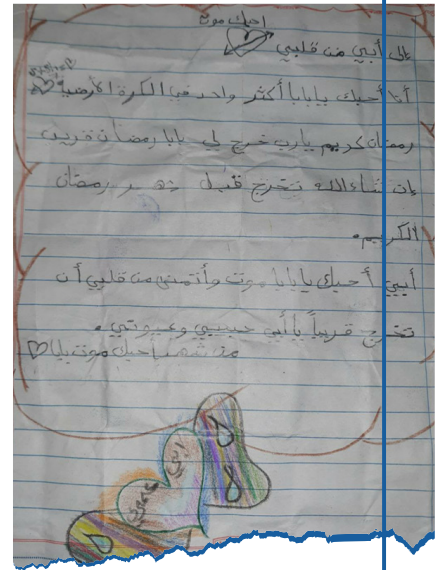 احبك موت
إلى أبي من قلبي
أنا أحبك يا بابا أكثر واحد في الكرة الأرضية
رمضان كريم يارب تخرج لي بابا رمضان قريب
إن شاء الله تخرج قبل شهر رمضان
الكريم.
أبي أحبك يا بابا موت وأتمنى من قلبي أن
تخرج قريباً يا أبي حبيبي وعيوني.
إحبك موت بابا